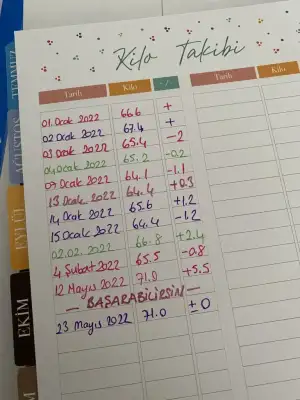 Kilo Takibi
Tarih Kilo +/- Tarih Kilo
01.Ocak 2022 66.6 +
02 Ocak 2022 67.4 +
03 Ocak 2022 65.4 -2
04 Ocak 2022 65.2 -0.2
09 Ocak 2022 64.1 -1.1
13 Ocak 2022 64.4 +0.3
14 Ocak 2022 65.6 +1.2
15 Ocak 2022 64.4 -1.2
02.02.2022 66.8 +2.4
4 Şubat 2022 65.5 -0.8
12 Mayıs 2022 71.0 +5.5
— BAŞARABİLİRSİN —
23 Mayıs 2022 71.0 ± 0
TEMMUZ
AĞUSTOS
EYLÜL
EKİM